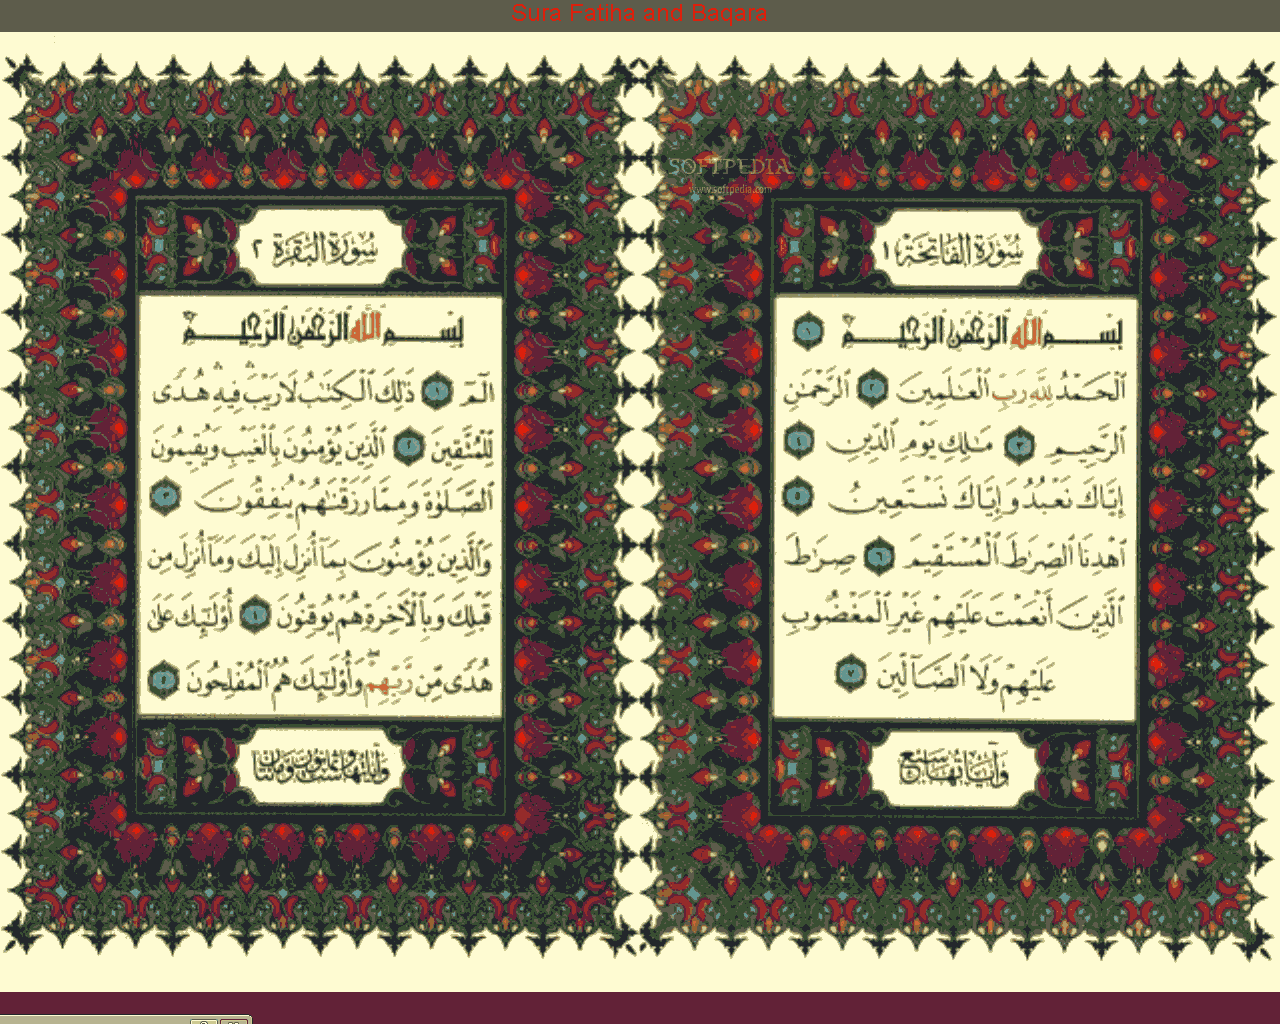 Sura Fatiha and Baqara
SOFTPEDIA
www.softpedia.com
سُورَة الفَاتِحَة ١
بِسْمِ اللَّهِ الرَّحْمَٰنِ الرَّحِيمِ ١
الْحَمْدُ لِلَّهِ رَبِّ الْعَٰلَمِينَ ٢ الرَّحْمَٰنِ
الرَّحِيمِ ٣ مَٰلِكِ يَوْمِ الدِّينِ ٤
إِيَّاكَ نَعْبُدُ وَإِيَّاكَ نَسْتَعِينُ ٥
اهْدِنَا الصِّرَٰطَ الْمُسْتَقِيمَ ٦ صِرَٰطَ
الَّذِينَ أَنْعَمْتَ عَلَيْهِمْ غَيْرِ الْمَغْضُوبِ
عَلَيْهِمْ وَلَا الضَّالِّينَ ٧
وَآيَاتُهَا سَبْعٌ
سُورَة البَقَرَة ٢
بِسْمِ اللَّهِ الرَّحْمَٰنِ الرَّحِيمِ
الٓمٓ ١ ذَٰلِكَ الْكِتَٰبُ لَا رَيْبَ ۛ فِيهِ ۛ هُدًى
لِّلْمُتَّقِينَ ٢ الَّذِينَ يُؤْمِنُونَ بِالْغَيْبِ وَيُقِيمُونَ
الصَّلَوٰةَ وَمِمَّا رَزَقْنَٰهُمْ يُنفِقُونَ ٣
وَالَّذِينَ يُؤْمِنُونَ بِمَا أُنزِلَ إِلَيْكَ وَمَا أُنزِلَ مِن
قَبْلِكَ وَبِالْآخِرَةِ هُمْ يُوقِنُونَ ٤ أُو۟لَٰئِكَ عَلَىٰ
هُدًى مِّن رَّبِّهِمْ وَأُو۟لَٰئِكَ هُمُ الْمُفْلِحُونَ ٥